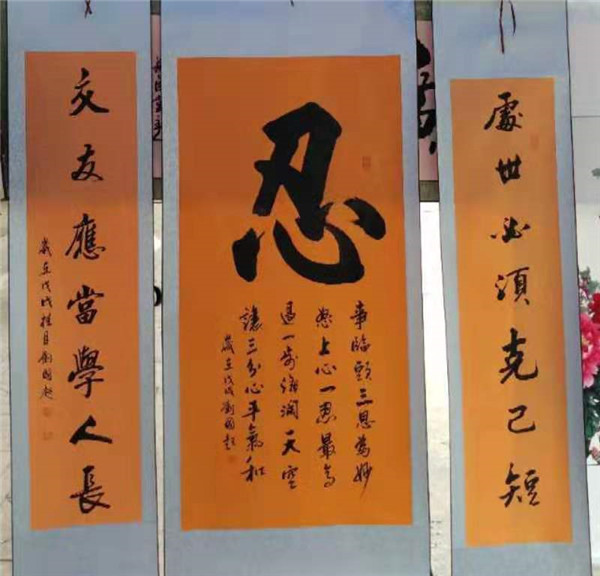 處世必須克己短
忍
事臨頭三思為妙
怒上心一忍最高
退一步海闊天空
讓三分心平氣和
歲在戊戌劉國起
交友應當學人長
歲在戊戌桂月劉國起